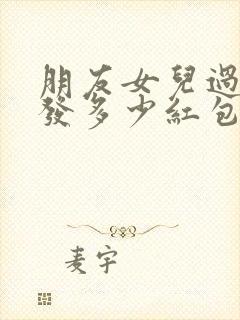 朋友女兒過
發多少紅包
麦宇